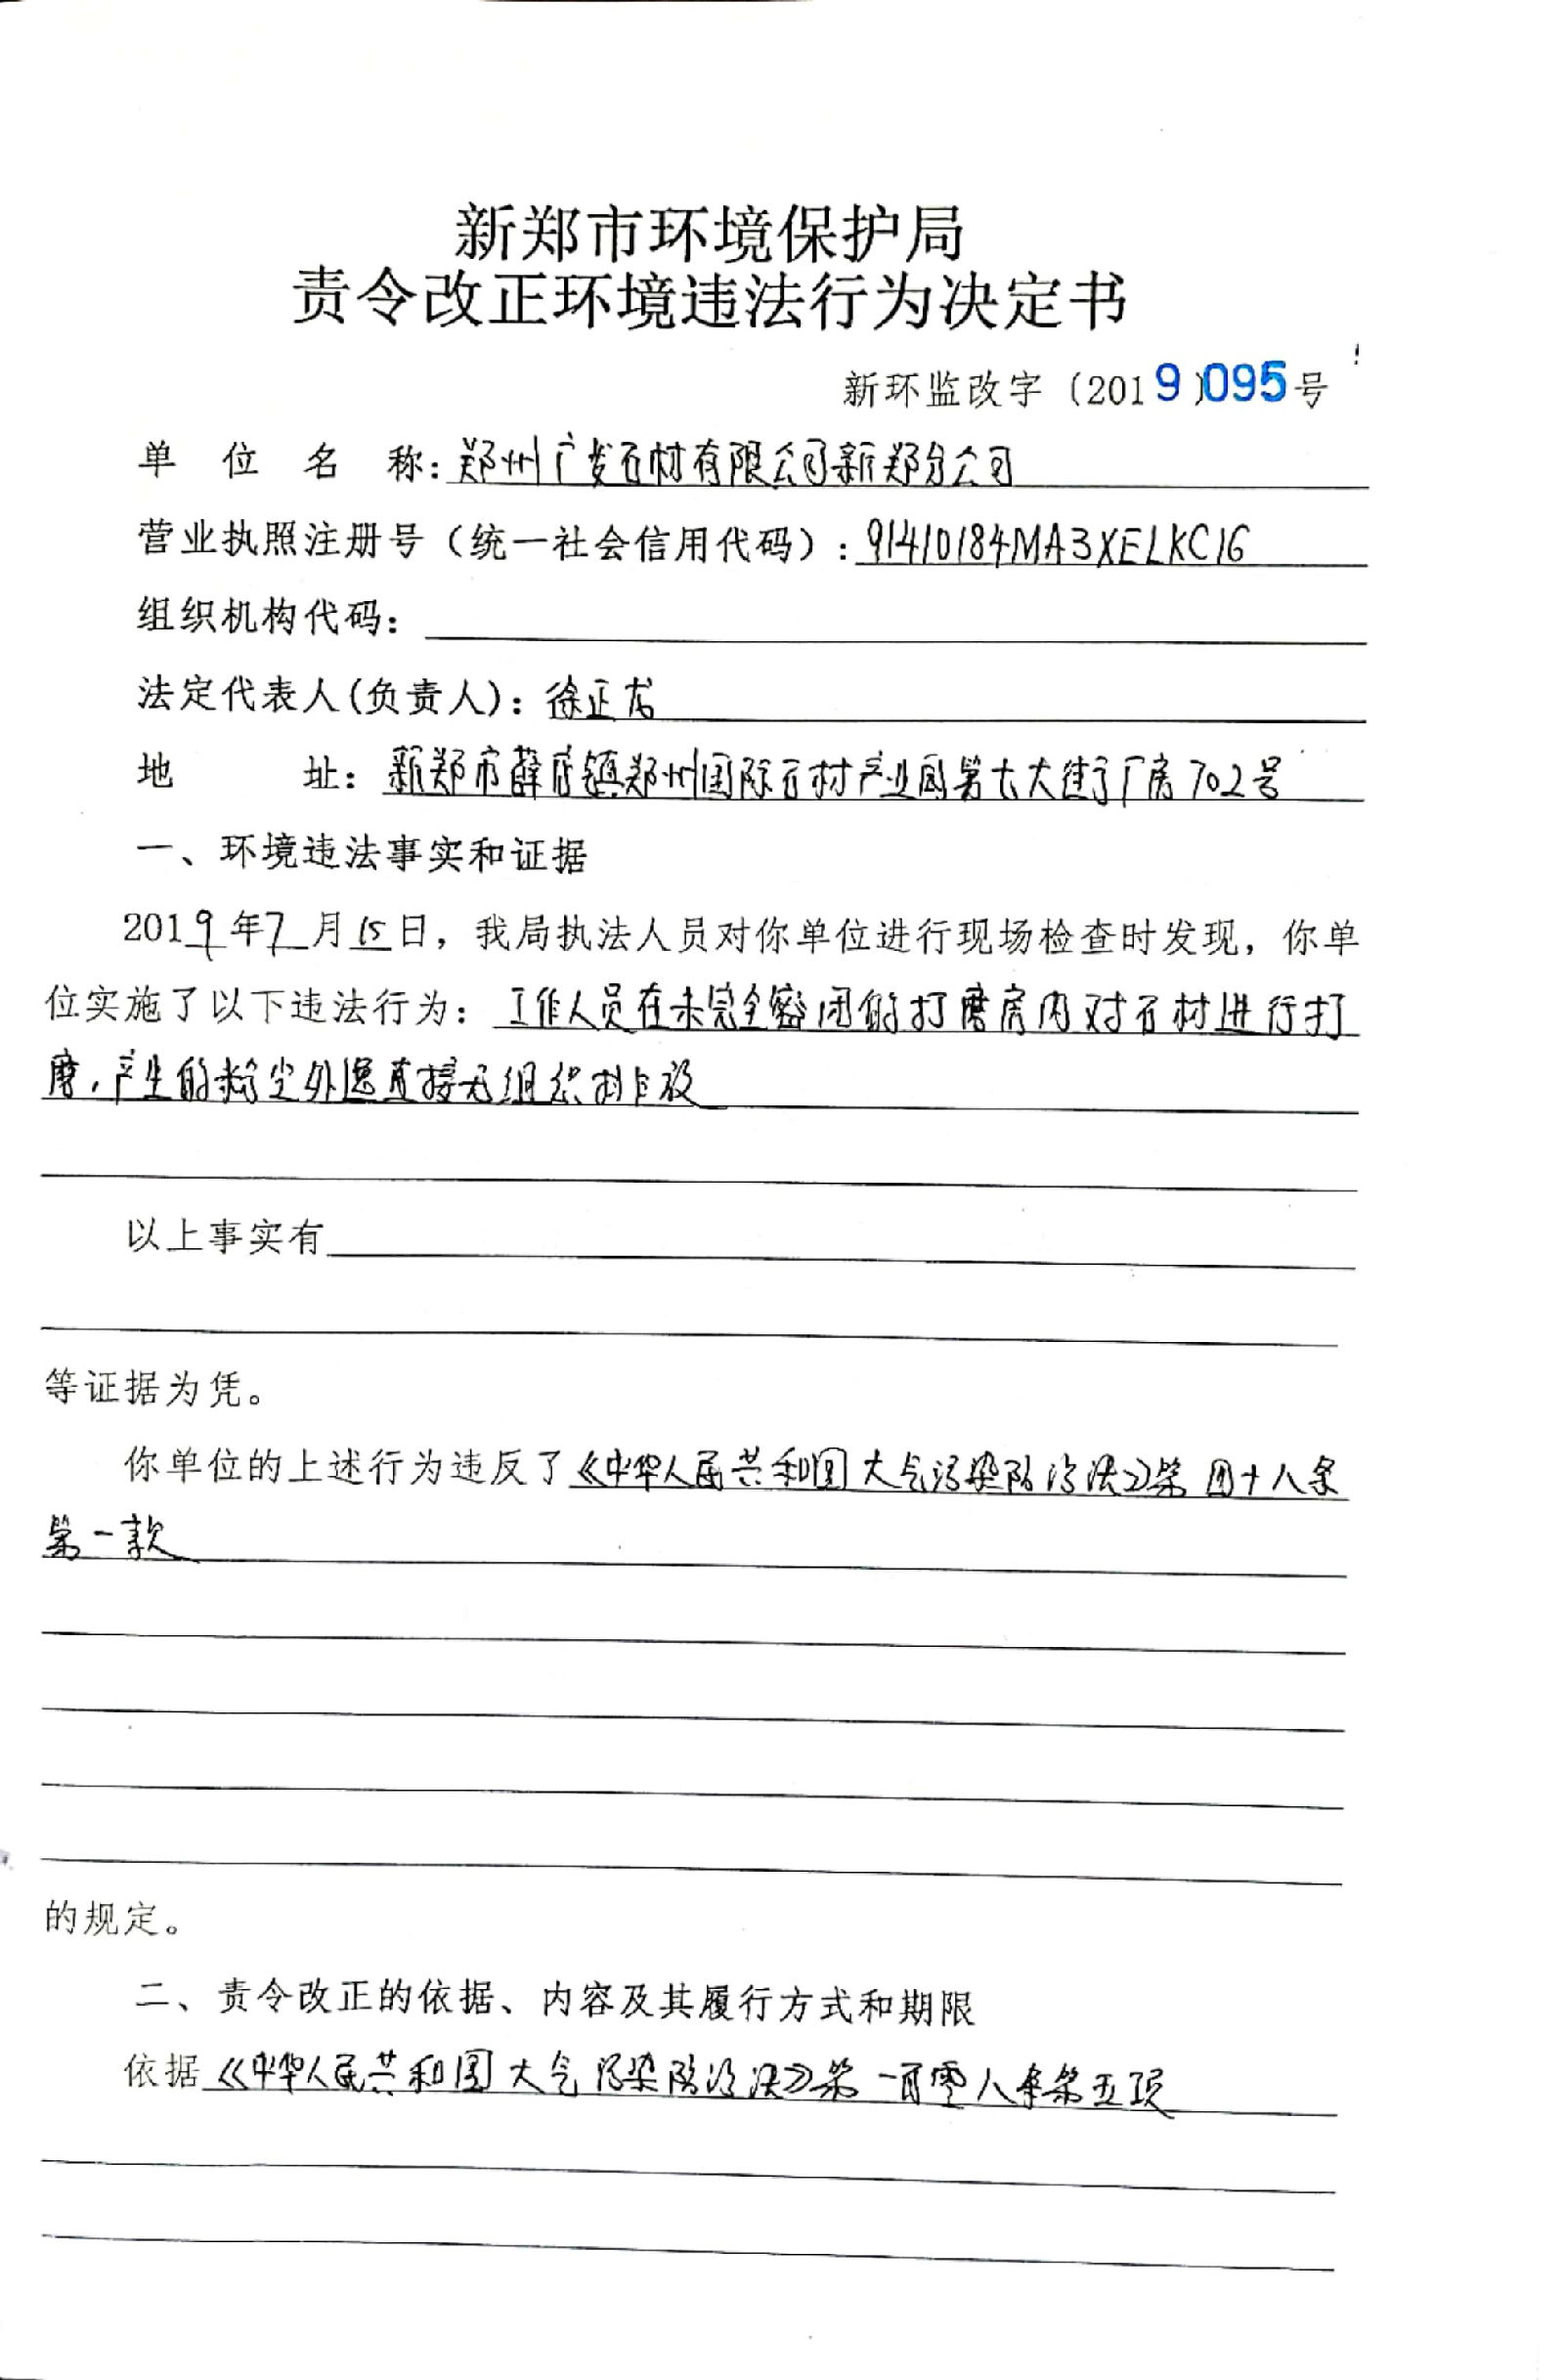 新郑市环境保护局
责令改正环境违法行为决定书
新环监改字（2019）095号
单位名称：郑州广发石材有限公司新郑分公司
营业执照注册号（统一社会信用代码）：91410184MA3XELKC1G
组织机构代码：
法定代表人(负责人)：徐正龙
地址：新郑市薛店镇郑州国际石材产业园第七大街厂房702号
一、环境违法事实和证据
2019年7月15日，我局执法人员对你单位进行现场检查时发现，你单
位实施了以下违法行为：工作人员在未完全密闭的打磨房内对石材进行打
磨，产生的粉尘外逸直接无组织排放
以上事实有
等证据为凭。
你单位的上述行为违反了《中华人民共和国大气污染防治法》第四十八条
第一款
的规定。
二、责令改正的依据、内容及其履行方式和期限
依据《中华人民共和国大气污染防治法》第一百零八条第五项